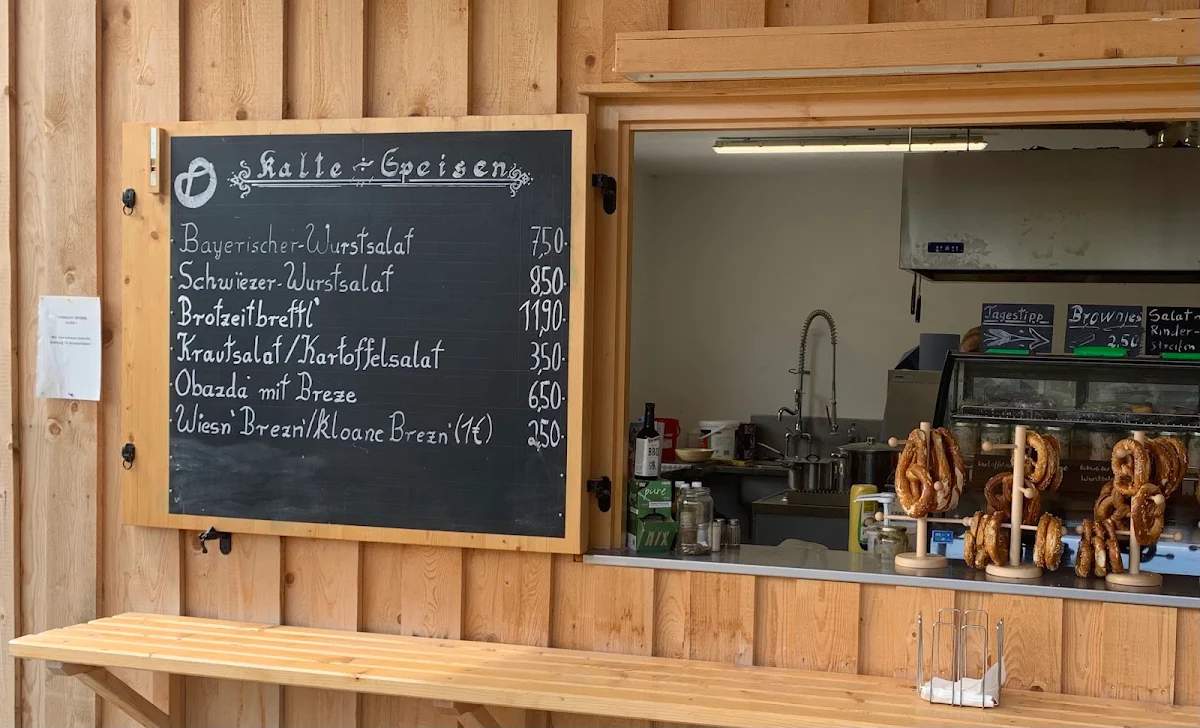 Kalte - Speisen
Bayerischer-Wurstsalat 7,50.
Schwiezer-Wurstsalat 8,50
Brotzeitbrettl 11,90.
Krautsalat/Kartoffelsalat 3,50.
Obazda mit Breze 6,50.
Wiesn Brezn/kloane Brezn (1€) 2,50.
Tagestipp
Brownies
2,50
Salat
Rinder
streifen
pure
MIX